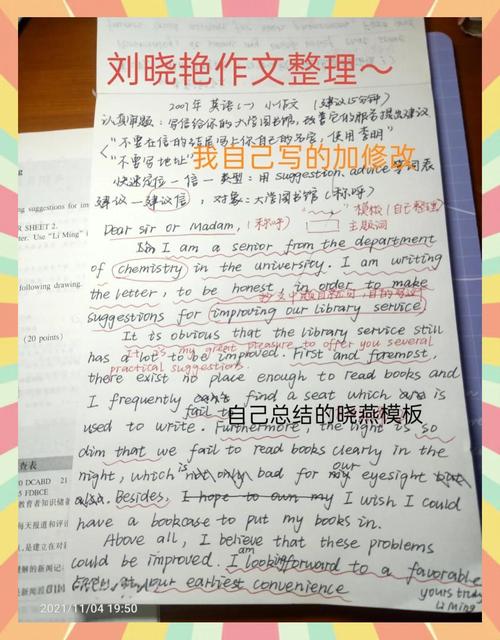 刘晓艳作文整理～
2007年 英语(一) 小作文 (建议15分钟)
认真审题：写信给你的大学图书馆，改善它的服务提出建议
"不要在信的结尾写上你自己的名字，使用李明"
"不要写地址"
我自己写的加修改
快速定位一信一类型：用 suggestion、advice 等词表
建议一建议信，对象：大学图书馆（称呼）
模板（自己整理）
主题词
Dear Sir or Madam, (称呼)
I am a senior from the department
of chemistry in the university. I am writing
the letter, to be honest, in order to make
suggestions for improving our library service
It is obvious that the library service still
has a lot to be improved. First and foremost,
It is my great pleasure to offer you several
practical suggestions.
there exist no place enough to read books and
I frequently can't find a seat which is
fail to
自己总结的晓燕模板
used to write. Furthermore, the light is so
dim that we fail to read books clearly in the
night, which is not only bad for our eyesight but
also. Besides, I hope to own my I wish I could
have a bookcase to put my books in.
Above all, I believe that these problems
could be improved. I am looking forward to a favorable
at your earliest convenience
yours truly
Li Ming
ng suggestions for im
R SHEET 2.
ter. Use "Li Ming" i
following drawing.
(20 points)
查表
DCABD 21
5 FDBCE
2021/11/04 19:50